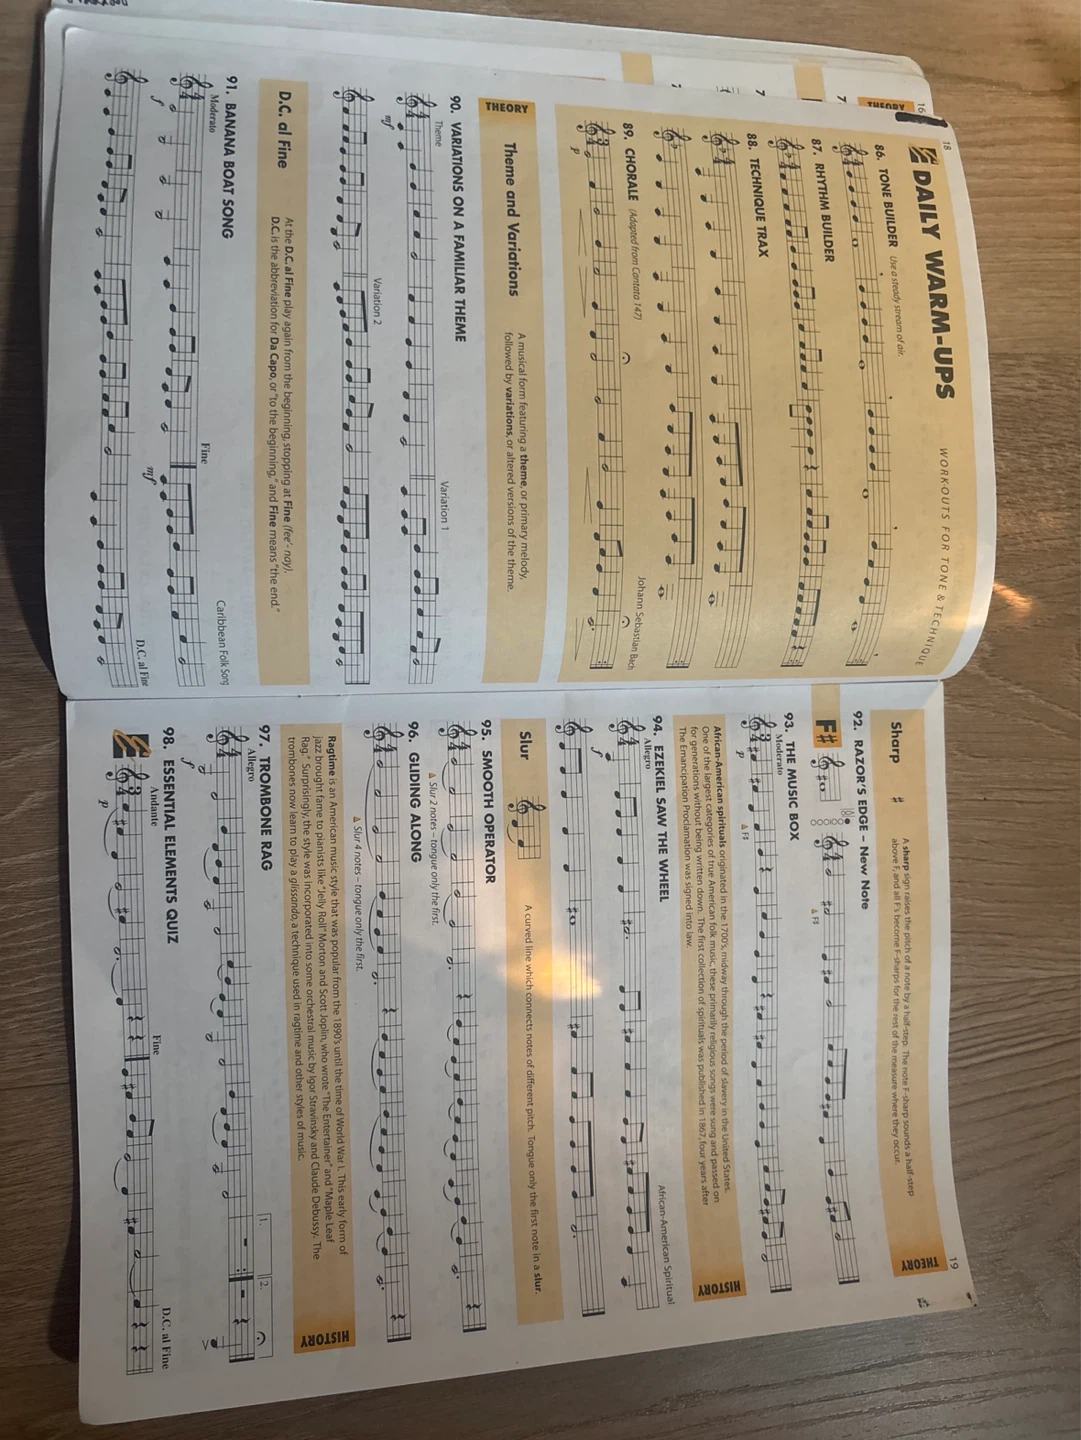 18
DAILY WARM-UPS
WORKOUTS FOR TONE & TECHNIQUE
86. TONE BUILDER Use a steady stream of air.
87. RHYTHM BUILDER
88. TECHNIQUE TRAX
89. CHORALE (Adapted from Cantata 147)
Johann Sebastian Bach
p
THEORY
Theme and Variations
A musical form featuring a theme, or primary melody,
followed by variations, or altered versions of the theme.
90. VARIATIONS ON A FAMILIAR THEME
Theme
Variation 1
mf
Variation 2
D.C. al Fine
At the D.C. al Fine play again from the beginning, stopping at Fine (fee'- nay).
D.C. is the abbreviation for Da Capo, or "to the beginning," and Fine means "the end."
91. BANANA BOAT SONG
Caribbean Folk Song
Moderato
Fine
f
mf
D.C. al Fine
19
Sharp ♯
A sharp sign raises the pitch of a note by a half-step. The note F-sharp sounds a half-step
above F, and all F's become F-sharps for the rest of the measure where they occur.
THEORY
92. RAZOR'S EDGE – New Note
F♯
△ F♯
93. THE MUSIC BOX
Moderato
p
△ F♯
African-American spirituals originated in the 1700's, midway through the period of slavery in the United States.
One of the largest categories of true American folk music, these primarily religious songs were sung and passed on
for generations without being written down. The first collection of spirituals was published in 1867, four years after
The Emancipation Proclamation was signed into law.
HISTORY
94. EZEKIEL SAW THE WHEEL
African-American Spiritual
Allegro
f
Slur
A curved line which connects notes of different pitch. Tongue only the first note in a slur.
95. SMOOTH OPERATOR
△ Slur 2 notes – tongue only the first.
96. GLIDING ALONG
△ Slur 4 notes – tongue only the first.
Ragtime is an American music style that was popular from the 1890's until the time of World War I. This early form of
jazz brought fame to pianists like "Jelly Roll" Morton and Scott Joplin, who wrote "The Entertainer" and "Maple Leaf
Rag." Surprisingly, the style was incorporated into some orchestral music by Igor Stravinsky and Claude Debussy. The
trombones now learn to play a glissando, a technique used in ragtime and other styles of music.
HISTORY
97. TROMBONE RAG
Allegro
1.
2.
f
98. ESSENTIAL ELEMENTS QUIZ
Andante
Fine
D.C. al Fine
p